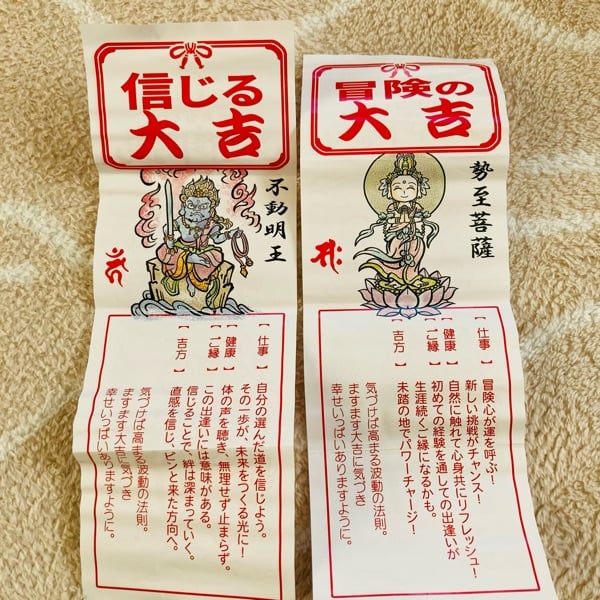 信じる
大吉
不動明王
【仕事】自分の選んだ道を信じよう。
その一歩が、未来をつくる光に！
【健康】体の声を聴き、無理せず止まらず。
【ご縁】この出逢いには意味がある。
信じることで、絆は深まっていく。
【吉方】直感を信じ、ピンと来た方向へ。
気づけば高まる波動の法則。
ますます大吉に気づき
幸せいっぱいありますように。
冒険の
大吉
勢至菩薩
【仕事】冒険心が運を呼ぶ！
新しい挑戦がチャンス！
【健康】自然に触れて心身共にリフレッシュ！
【ご縁】初めての経験を通しての出逢いが
生涯続くご縁になるかも。
【吉方】未踏の地でパワーチャージ！
気づけば高まる波動の法則。
ますます大吉に気づき
幸せいっぱいありますように。